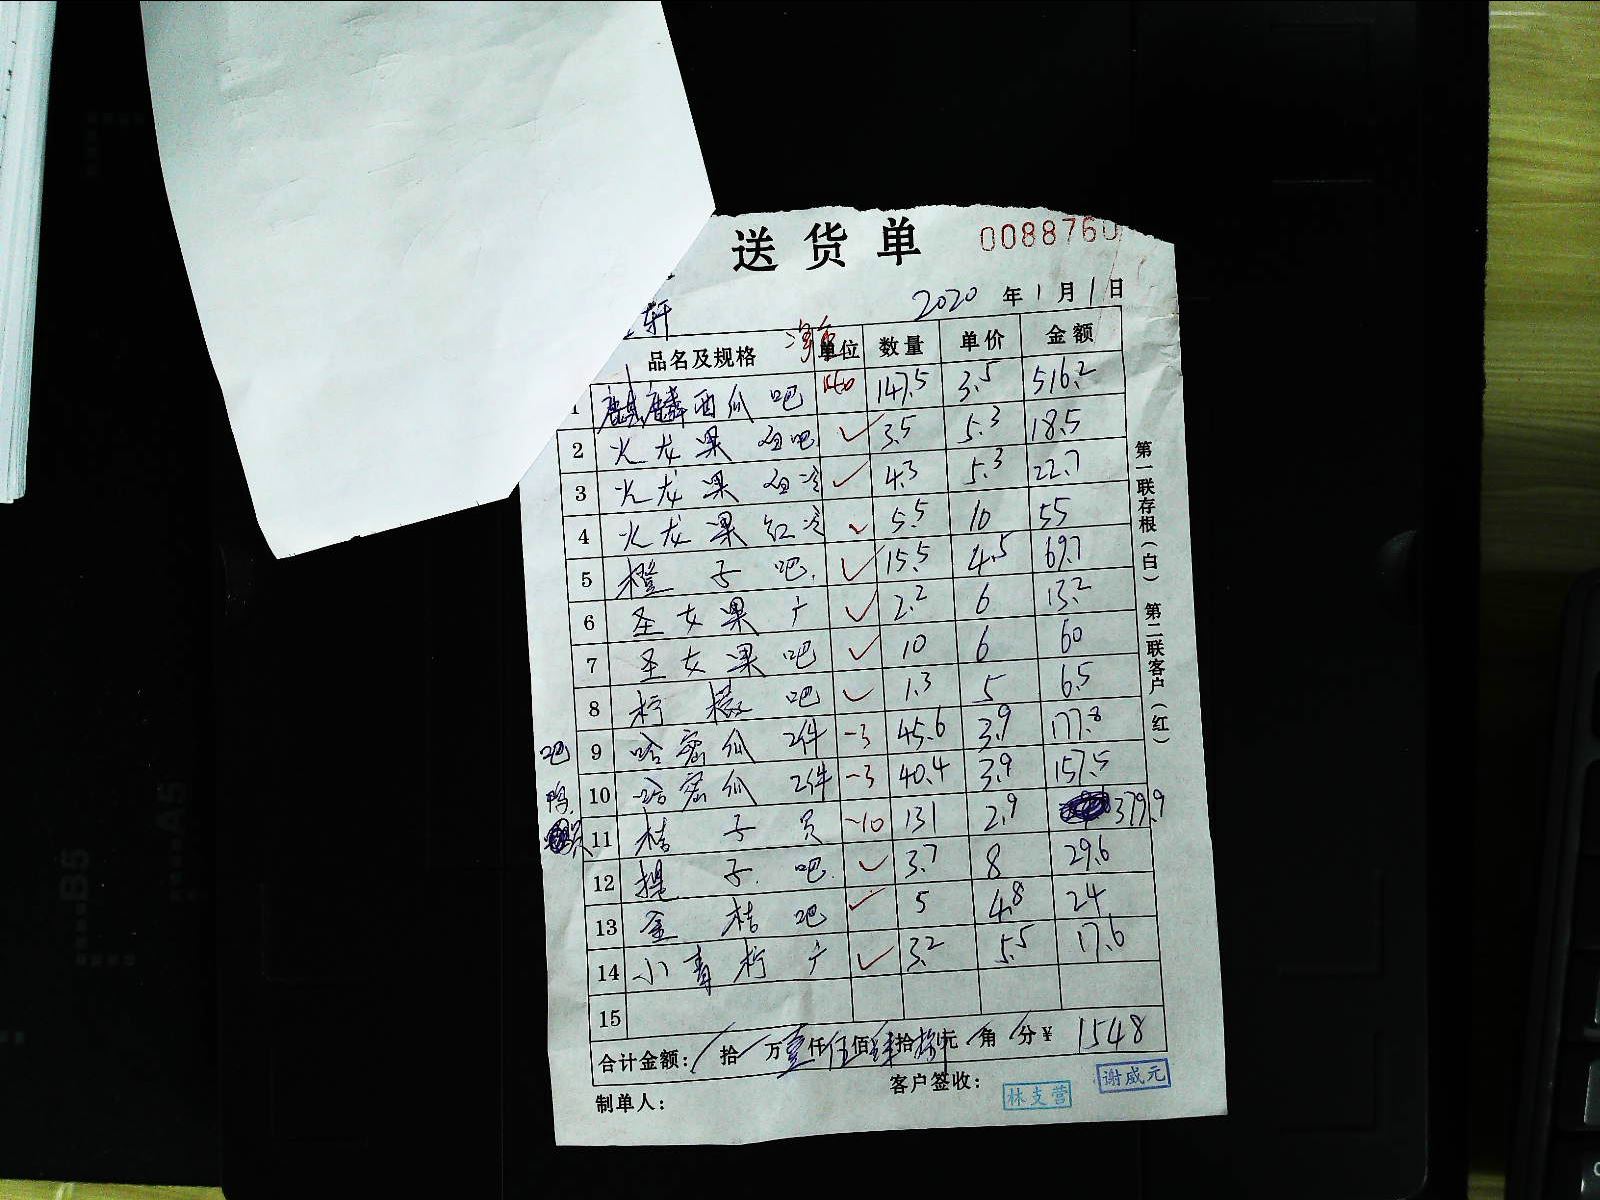 送货单 0088760
2020 年 1 月 1 日
轩
品名及规格 单位 数量 单价 金额
1 麒麟西瓜 吧 140 147.5 3.5 516.2
2 火龙果 白吧 ✓ 3.5 5.3 18.5
3 火龙果 白冷 ✓ 4.3 5.3 22.7
4 火龙果 红冷 ✓ 5.5 10 55
5 橙子 吧 ✓ 15.5 4.5 69.7
6 圣女果 广 ✓ 2.2 6 13.2
7 圣女果 吧 ✓ 10 6 60
8 柠檬 吧 ✓ 1.3 5 6.5
吧 9 哈密瓜 2件 -3 45.6 3.9 177.8
10 哈密瓜 2件 -3 40.4 3.9 157.5
员 11 桔子 员 -10 131 2.9 379.9
12 提子 吧 ✓ 3.7 8 29.6
13 金桔 吧 ✓ 5 4.8 24
14 小青柠 广 ✓ 3.2 5.5 17.6
15
合计金额: 拾 万壹仟伍佰肆拾捌元 角 分 ¥ 1548
制单人: 客户签收: 林支营 谢威元
第一联存根(白) 第二联客户(红)
B5
A5